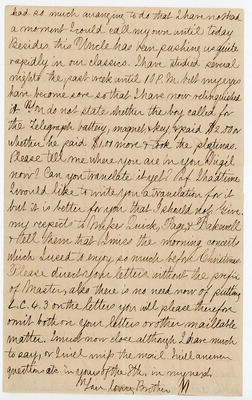 had so much arranging to do that I have not had
a moment I could call my own until today
Besides this Uncle has been pushing us quite
rapidly in our classics. I have studied several
nights the past week until 10 P.M. but my eyes
have become sore so that I have now relinquished
it. You do not state whether the boy called for
the Telegraph battery, magnet & key & paid $2.00 or
whether he paid $1.00 more & took the platinas.
Please tell me where you are in your Virgil
now? Can you translate it yet? Prf.
I would like to write you a translation for it
but it is better for you that I should not. Give
my respects to Buck, Page & Bakewell
& tell them that I miss the morning concerts
which I used to enjoy so much before Christmas.
Please direct your letters without the prefix
of Master, also there is no need now of putting
L.C. 4.3 on the letters you will please therefore
omit both on your letters or other mailable
matter. I must now close although I have much
to say, or I will miss the mail. Will answer
questions etc in yours of the 8th, in my next.
Your loving Brother